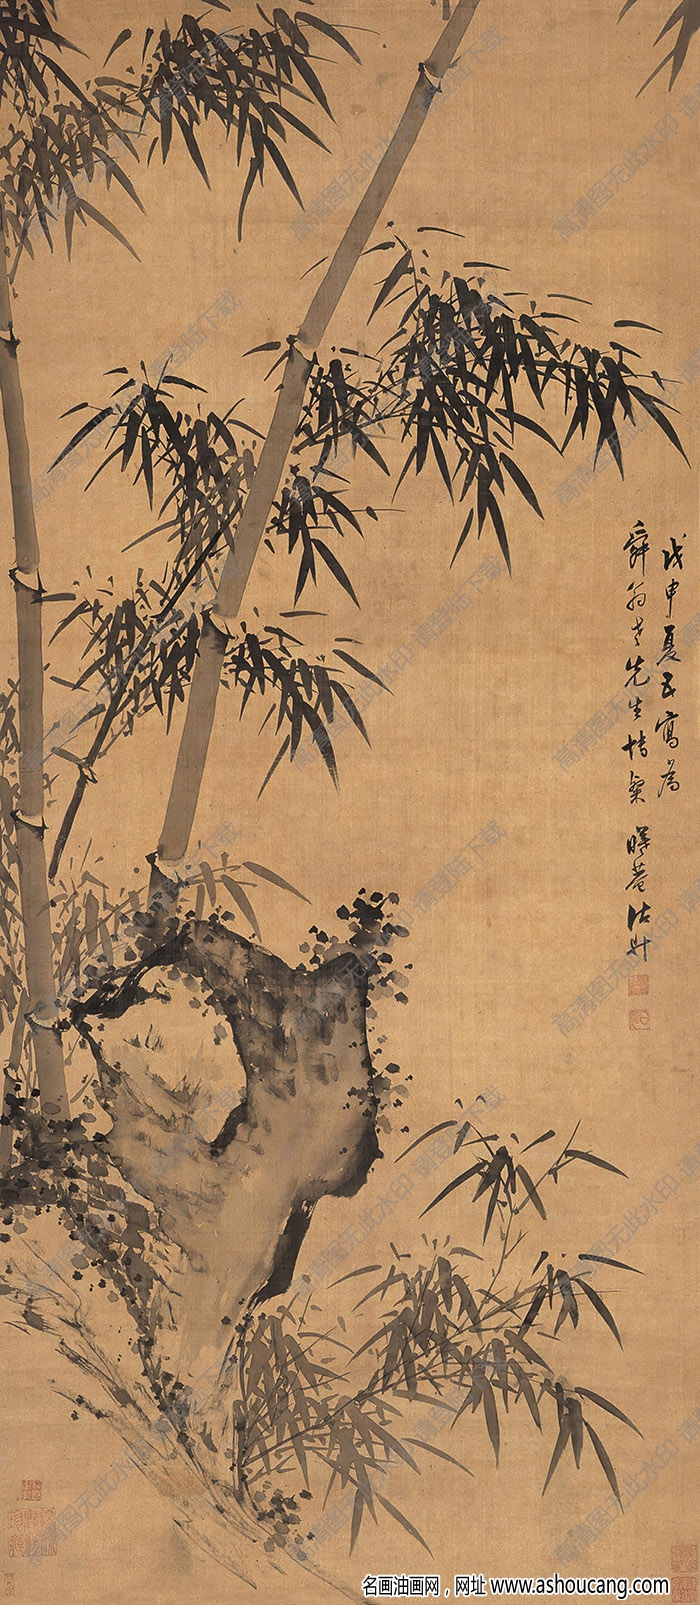 戊申夏五寫為
舜翁老先生博粲 曦菴諸升
高清图无此水印 请登陆下载
名画油画网，网址 www.ashoucang.com